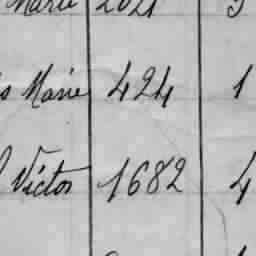 Marie 2021
s Marie 424 1
Victor 1682 4